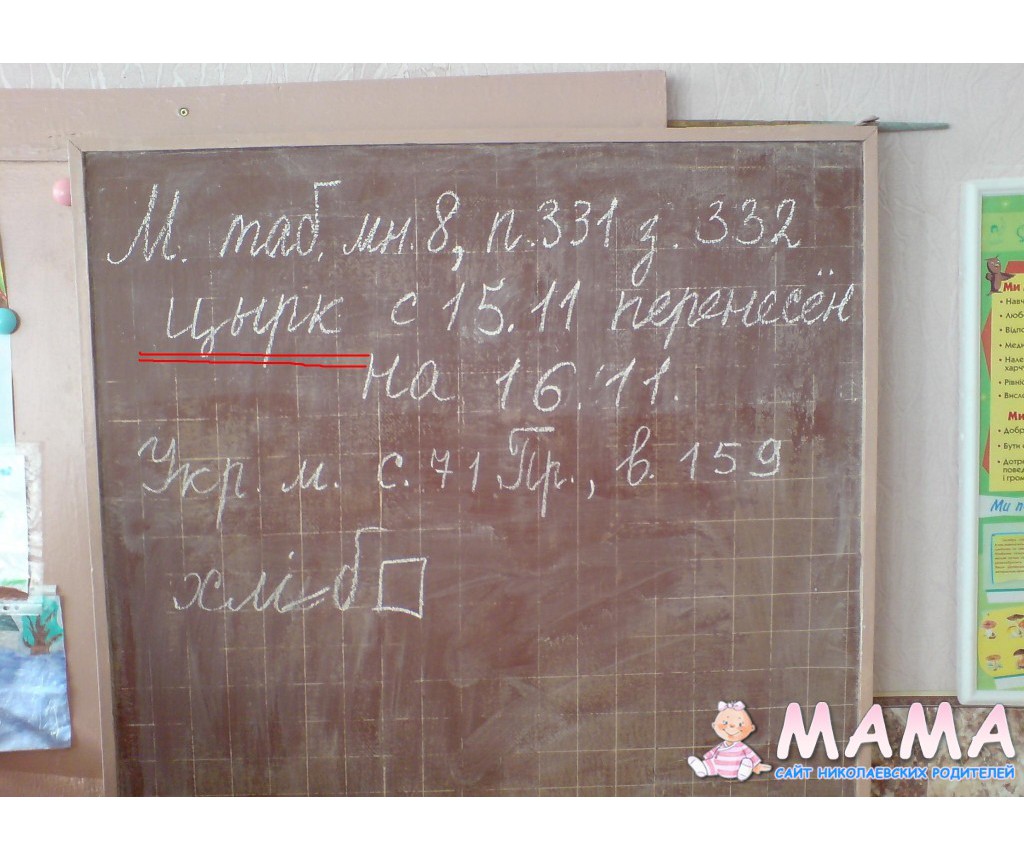 М. таб. мн. 8, п. 331 з. 332
цырк с 15.11 перенесён
на 16.11.
Укр. м. с. 71. Пр., в. 159
Ми
• Навч
• Люб
• Відпо
• Медн
• Нале
харчу
• Рівні
• Висло
Ми
• Добр
• Бути
• Дотри
повед
і гром
Ми п
МАМА
САЙТ НИКОЛАЕВСКИХ РОДИТЕЛЕЙ